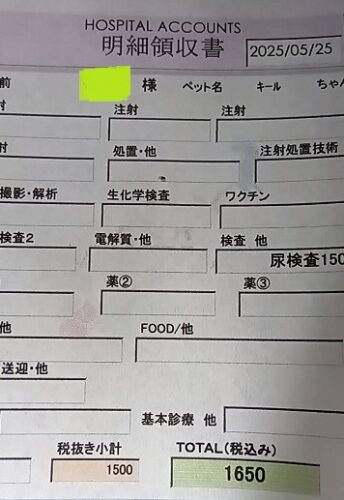 HOSPITAL ACCOUNTS
明細領収書 2025/05/25
前 様 ペット名 キール ちゃん
射 注射 注射
射 処置・他 注射処置技術
撮影・解析 生化学検査 ワクチン
検査2 電解質・他 検査 他
尿検査150
薬② 薬③
他 FOOD/他
送迎・他
基本診療 他
税抜き小計 TOTAL(税込み)
1500 1650